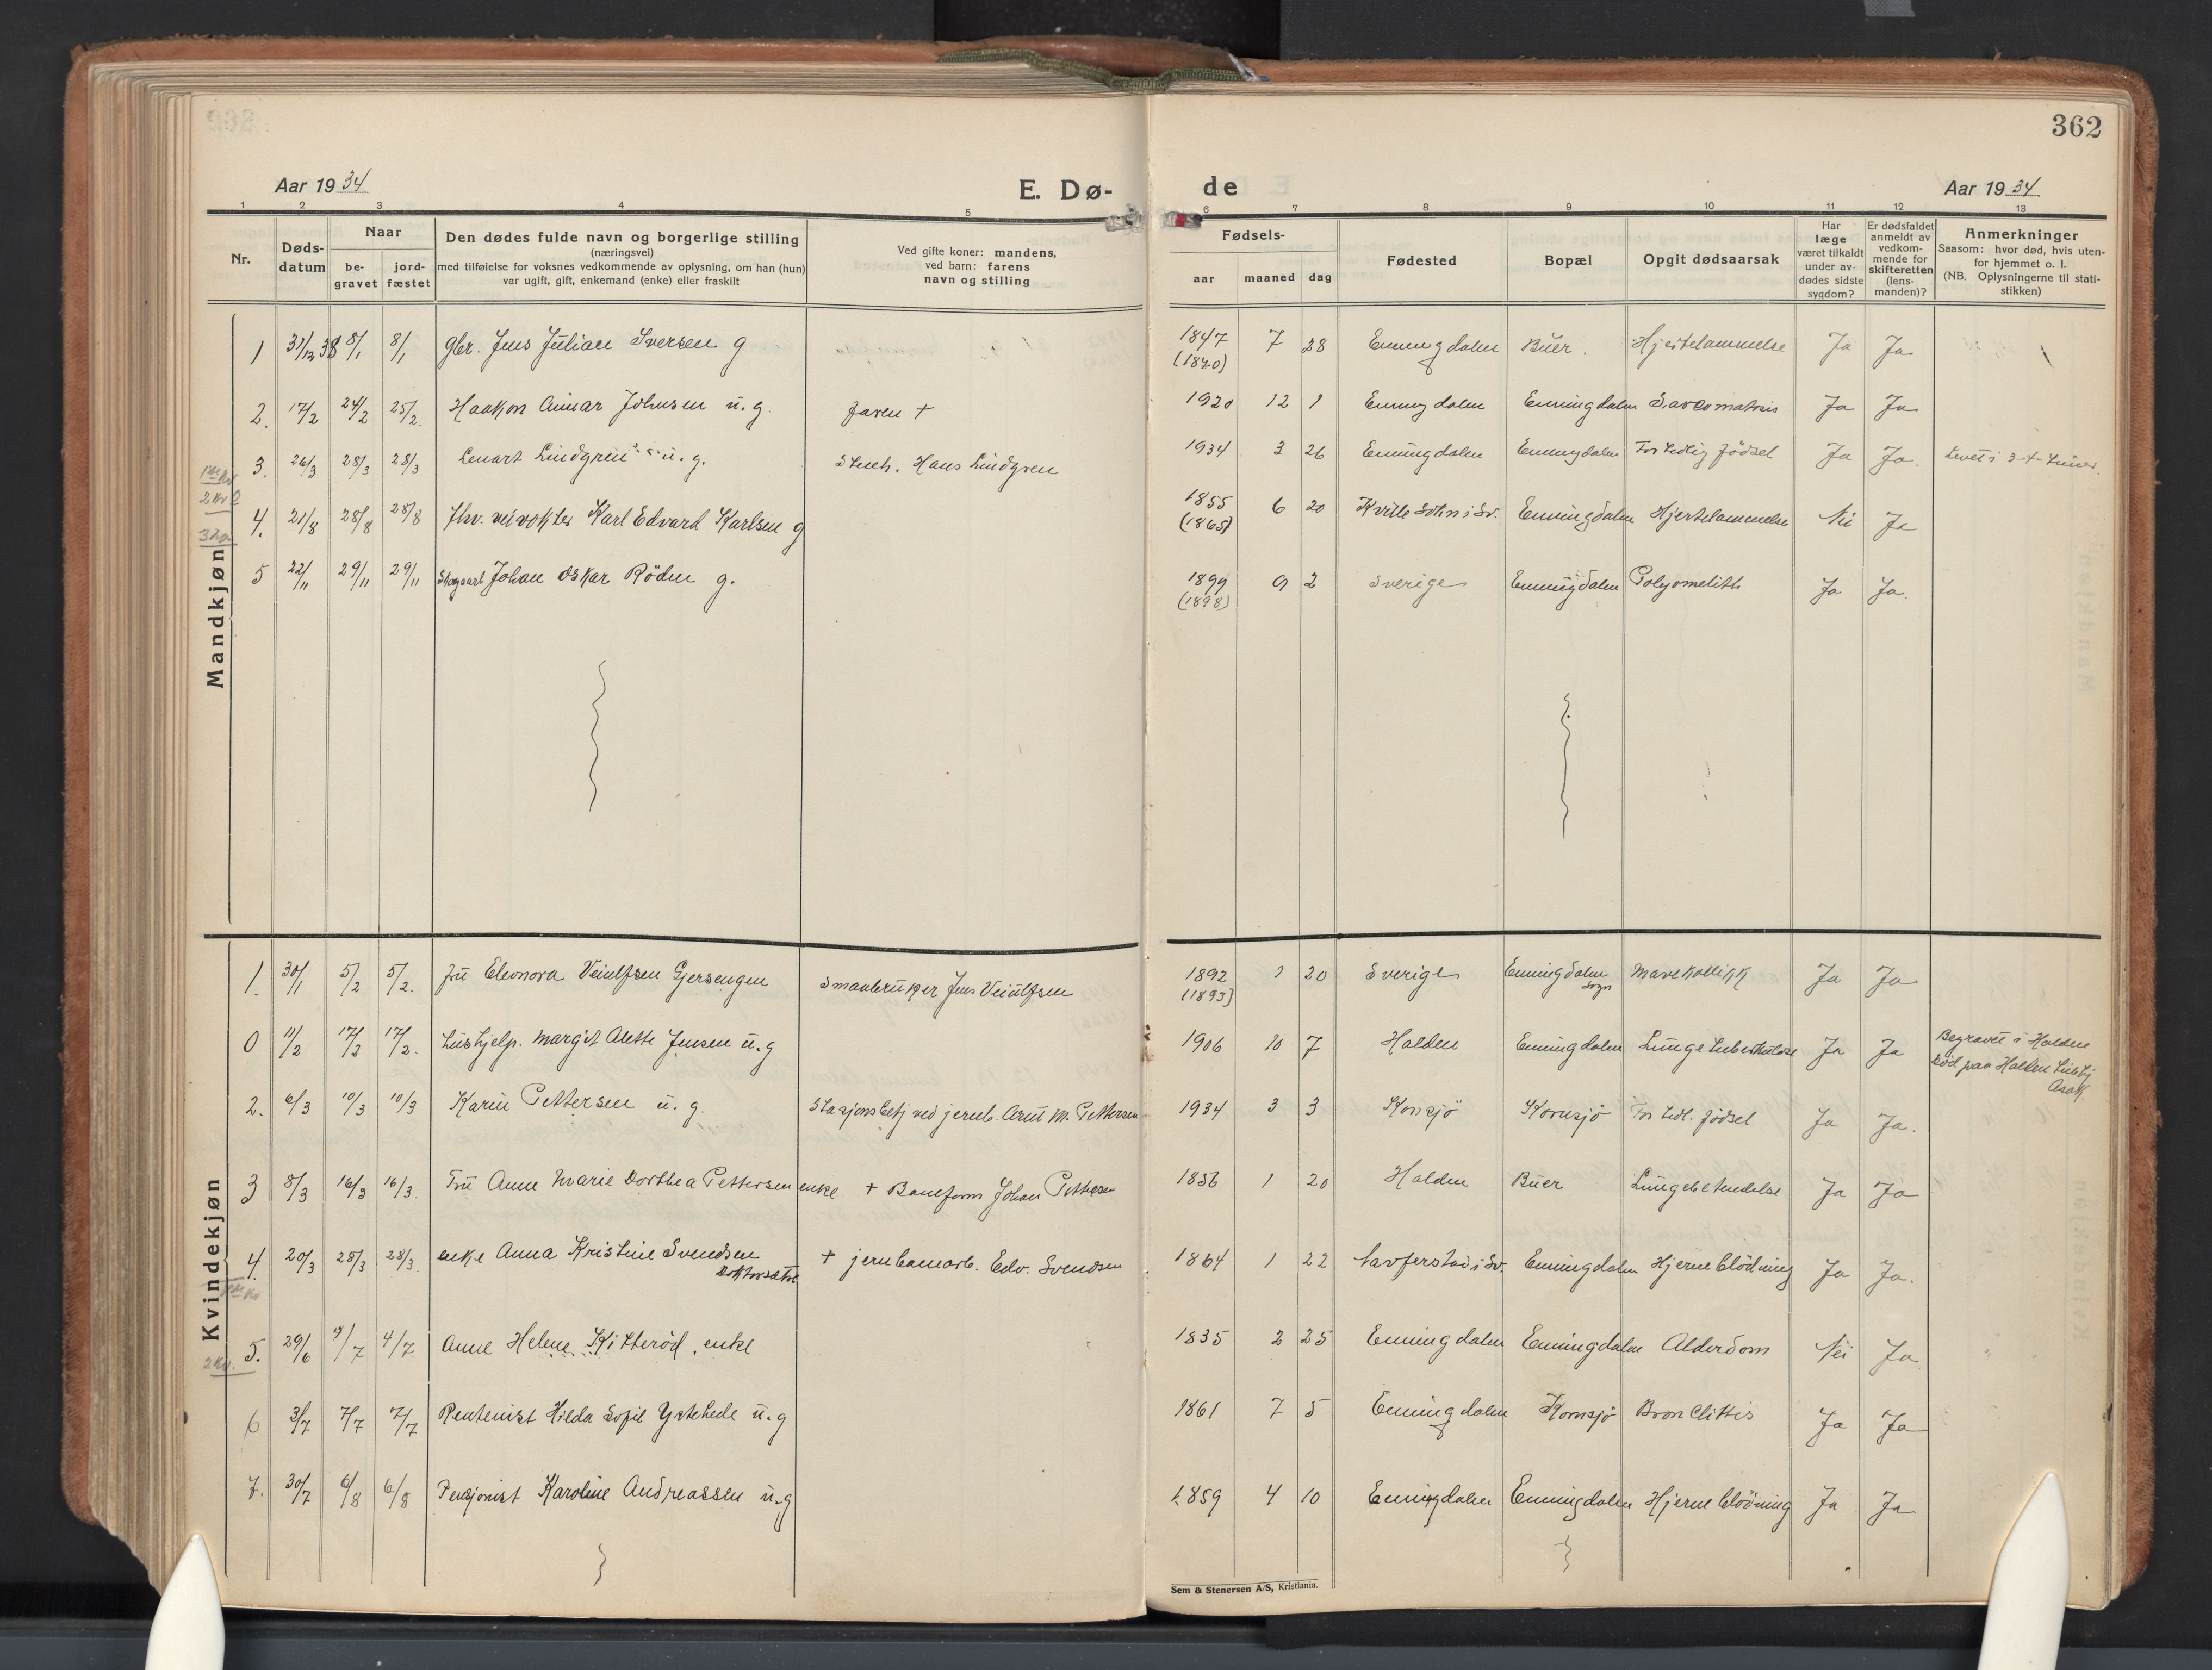 362
Aar 1934
E. Dø-
de
Aar 1934
1 2 3 4 5 6 7 8 9 10 11 12 13
Nr.
Døds-
datum
Naar
be-
gravet
jord-
fæstet
Den dødes fulde navn og borgerlige stilling
(næringsvei)
med tilføielse for voksnes vedkommende av oplysning, om han (hun)
var ugift, gift, enkemand (enke) eller fraskilt
Ved gifte koner: mandens,
ved barn: farens
navn og stilling
Fødsels-
aar maaned dag
Fødested
Bopæl
Opgit dødsaarsak
Har
læge
været tilkaldt
under av-
dødes sidste
sygdom?
Er dødsfaldet
anmeldt av
vedkom-
mende for
skifteretten
(lens-
manden)?
Anmerkninger
Saasom: hvor død, hvis uten-
for hjemmet o. l.
(NB. Oplysningerne til stati-
stikken)
Mandkjøn
1 31/12 8/1 8/1 gbr. Jens Julian Iversen g 1847 7 28 Enningdalen Buer. Hjertelammelse Ja Ja
(1870)
2. 17/2 24/2 25/2. Haakon Einar Johnsen u. g. faren + 1920 12 1 Enningdalen Enningdalen Ja Ja
3. 26/3 28/3 28/3 Lenart Lindgren u. g. Hans Lindgren 1934 3 26 Enningdalen Enningdalen For tidlig fødsel Ja Ja. Levet i 3-4 timer.
4. 21/8 28/8 28/8 Fhv. veivokter Karl Edvard Karlsen g 1855 6 20 Kville sokn i Sv. Enningdalen Hjertelammelse Nei Ja
(1865)
5 22/11 29/11 29/11 Skogsarb Johan Oskar Röden g. 1899 9 2 Sverige Enningdalen Polyomelith Ja Ja.
(1898)
Kvindekjøn
1. 30/1 5/2 5/2. fru Eleonora Veiulfsen Gjersengen Smaabruker Jens Veiulfsen 1892 1 20 Sverige Enningdalen sogn Mavekatlikk Ja Ja
(1893)
0 11/2 17/2 17/2. Hushjelp. Margit Alette Jensen u. g 1906 10 7 Halden Enningdalen Lungetuberkulose Ja Ja Begravet i Halden
Død paa Halden
2. 6/3 10/3 10/3 Karin Pettersen u. g. Stasjonsbetj ved jernb. Arnt M. Pettersen 1934 3 3 Konsjö Kornsjø For tidl. fødsel Ja Ja.
3 8/3 16/3 16/3. Fru Anne Marie Dorthea Pettersen enke + Baneform Johan Pettersen 1856 1 20 Halden Buer Lungebetendelse Ja Ja
4. 20/3 28/3 28/3. enke Anna Kristine Svendsen + jernbanearb. Edv. Svendsen 1864 1 22 Enningdalen Hjerneblödning Ja Ja.
5. 29/6 4/7 4/7 Anne Helene Kitteröd. enke 1835 2 25 Enningdalen Enningdalen Alderdom Nei Ja
6 3/7 7/7 7/7 Rentenist Hilda Sofie Ystehede u. g 1861 7 5 Enningdalen Kornsjø Bronchittis Ja Ja
7. 30/7 6/8 6/8 Pensjonist Karoline Andreassen u. g 1859 4 10 Enningdalen Enningdalen Hjerneblödning Ja Ja
Sem & Stenersen A/S, Kristiania.